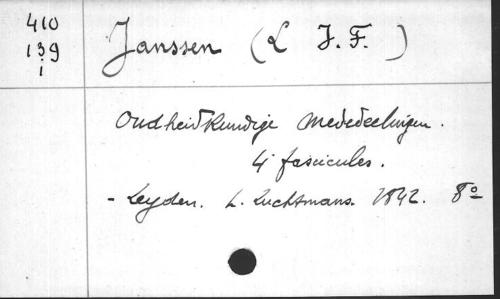 410
139
1
Janssen (L J. F. )
Oudheidkundige Mededeelingen.
4 fascicules.
- Leyden. L. Luchtmans. 1842. 8º